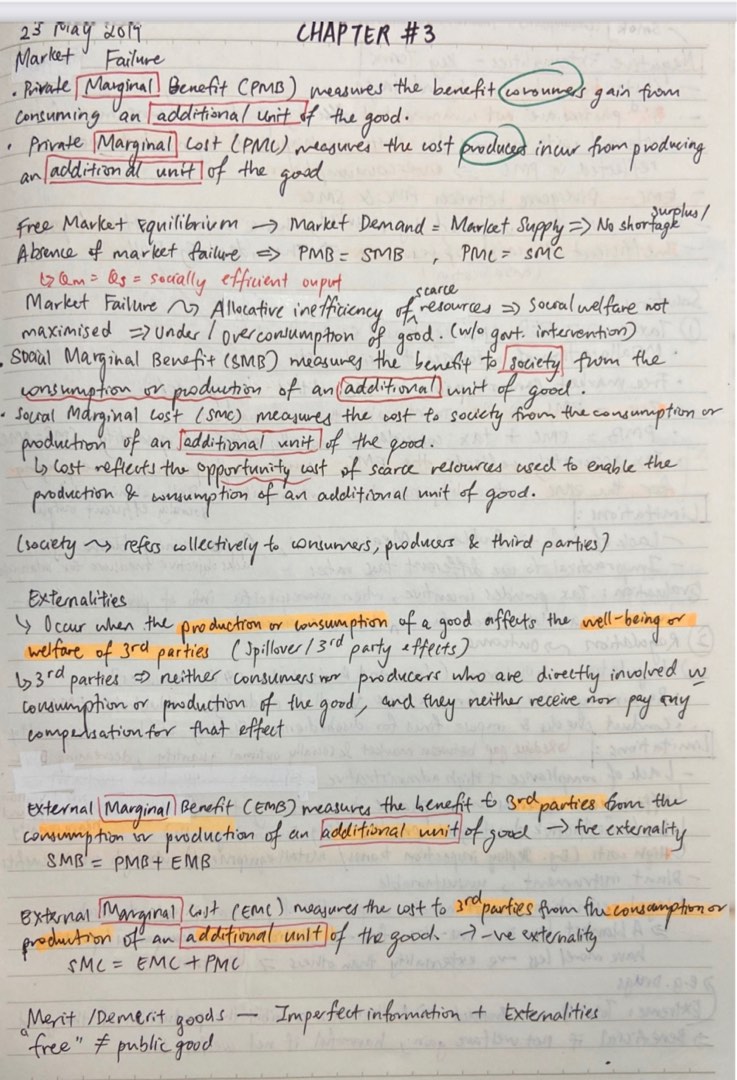 23 May 2019 CHAPTER #3
Market Failure
• Private Marginal Benefit (PMB) measures the benefit consumers gain from
consuming an additional unit of the good.
• Private Marginal Cost (PMC) measures the cost producers incur from producing
an additional unit of the good
surplus/
Free Market Equilibrium → Market Demand = Market Supply => No shortage
Absence of market failure => PMB = SMB , PMC = SMC
↳ Qm = Qs = socially efficient ouput
scarce
Market Failure ~> Allocative inefficiency of resources => Social welfare not
maximised => Under / Overconsumption of good. (w/o govt. intervention)
• Social Marginal Benefit (SMB) measures the benefit to society from the
consumption or production of an additional unit of good.
• Social Marginal Cost (SMC) measures the cost to society from the consumption or
production of an additional unit of the good.
↳ Cost reflects the opportunity cost of scarce resources used to enable the
production & consumption of an additional unit of good.
(Society ~> refers collectively to consumers, producers & third parties)
Externalities
↳ Occur when the production or consumption of a good affects the well-being or
welfare of 3rd parties (Spillover / 3rd party effects)
↳ 3rd parties => neither consumers nor producers who are directly involved w
consumption or production of the good, and they neither receive nor pay any
compensation for that effect
External Marginal Benefit (EMB) measures the benefit to 3rd parties from the
consumption or production of an additional unit of good → +ve externality
SMB = PMB + EMB
External Marginal Cost (EMC) measures the cost to 3rd parties from the consumption or
production of an additional unit of the good. → -ve externality
SMC = EMC + PMC
Merit / Demerit goods — Imperfect information + Externalities
"free" ≠ public good